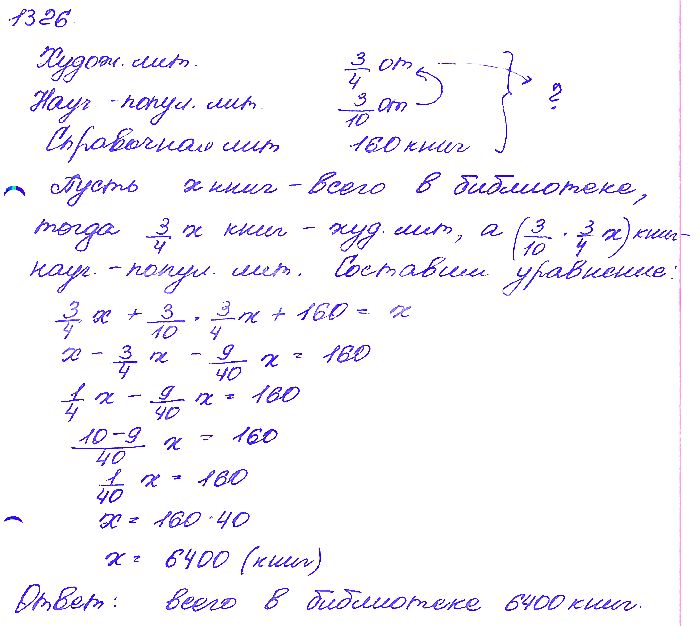 1326.
Худож. лит. 3/4 от
Науч-попул. лит. 3/10 от
Справочная лит 160 книг } ?
Пусть x книг - всего в библиотеке,
тогда 3/4 x книг - худ. лит, а (3/10 · 3/4 x) книг-
науч.-попул. лит. Составим уравнение:
3/4 x + 3/10 · 3/4 x + 160 = x
x - 3/4 x - 9/40 x = 160
1/4 x - 9/40 x = 160
(10-9)/40 x = 160
1/40 x = 160
x = 160·40
x = 6400 (книг)
Ответ: всего в библиотеке 6400 книг.